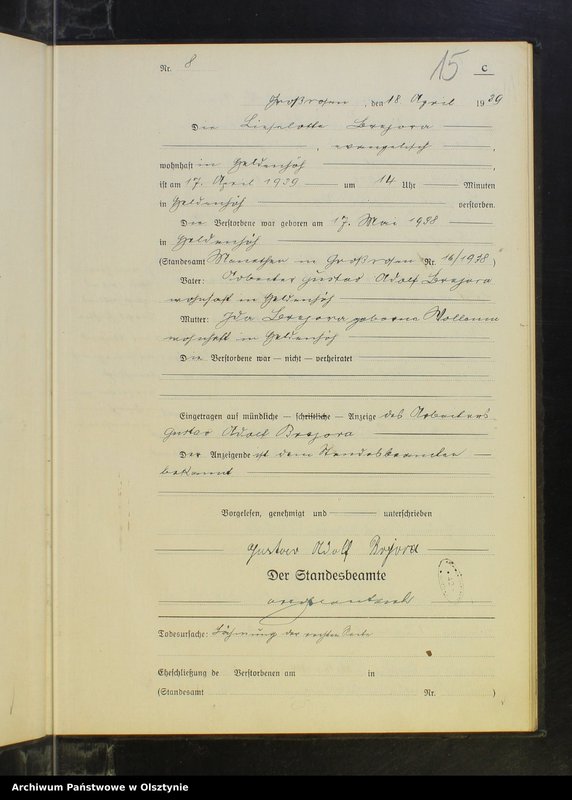 Nr. 8
15 C
Großrosen, den 18. April 1939
Die Lieselotte Brejora
, evangelisch,
wohnhaft in Geldenhöf,
ist am 17. April 1939 um 14 Uhr Minuten
in Geldenhöf verstorben.
Die Verstorbene war geboren am 17. Mai 1938
in Geldenhöf
(Standesamt in Großrosen Nr. 16/1938)
Vater: Arbeiter Gustav Adolf Brejora
wohnhaft in Geldenhöf
Mutter: Ida Brejora geborene
wohnhaft in Geldenhöf
Die Verstorbene war — nicht — verheiratet
Eingetragen auf mündliche — schriftliche — Anzeige des Arbeiters
Gustav Adolf Brejora
Der Anzeigende ist dem Standesbeamten
bekannt
Vorgelesen, genehmigt und unterschrieben
Gustav Adolf Brejora
Der Standesbeamte
Todesursache: Lähmung der rechten Seite
Eheschließung de Verstorbenen am in
(Standesamt Nr. )
Archiwum Państwowe w Olsztynie